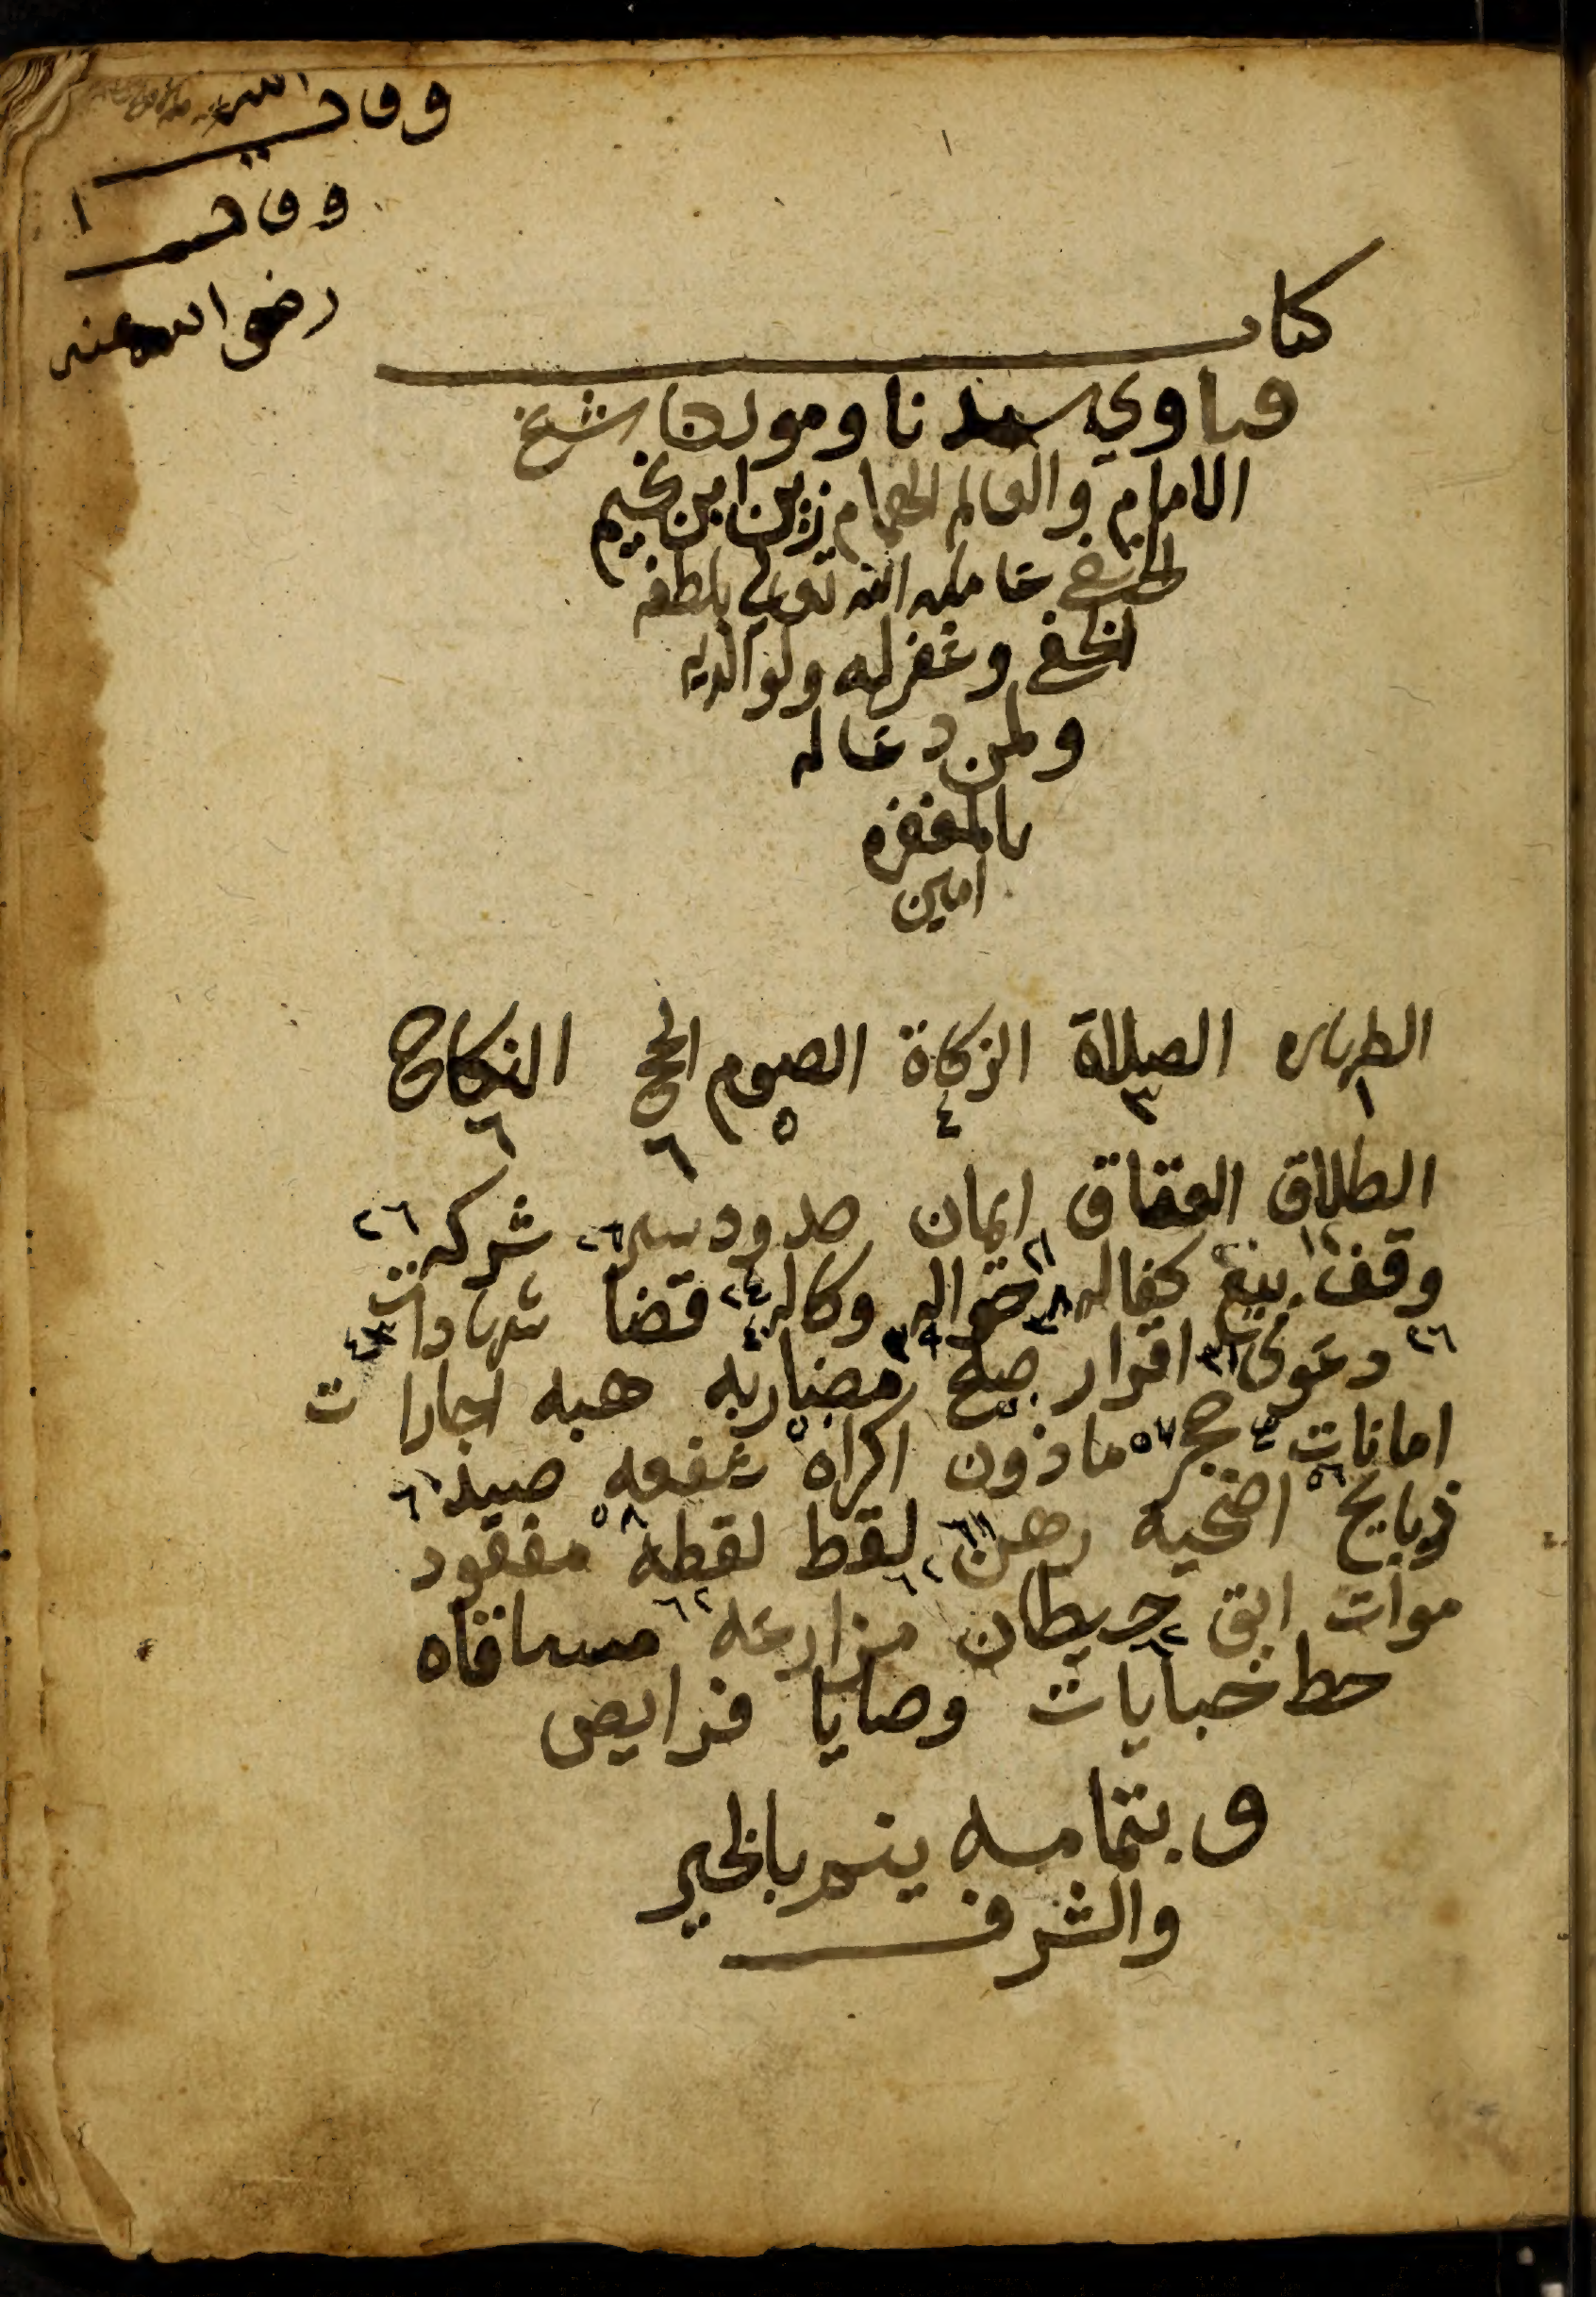 وقف
وقف
رضي الله عنه
١
كتاب
فتاوي سيدنا ومولانا شيخ
الامام والعالم الهمام زين ابن نجيم
الحنفي عامله الله تعالي بلطفه
الخفي وغفر له ولوالديه
ولمن دعا له
بالمغفره
امين
الطهاره الصلاة الزكاة الصوم الحج النكاح
١ ٣ ٤ ٥ ٦ ٦
الطلاق العتاق ايمان حدود سير شركه
وقف بيع كفاله حواله وكاله قضا شهادات
دعوى اقرار صلح مضاربه هبه اجارات
امانات حجر ماذون اكراه شفعه صيد
ذبايح اضحيه رهن لقط لقطه مفقود
موات ابق حيطان مزارعه مساقاه
حط خبايات وصايا فرايض
وبتمامه يتم بالخير
والشرف